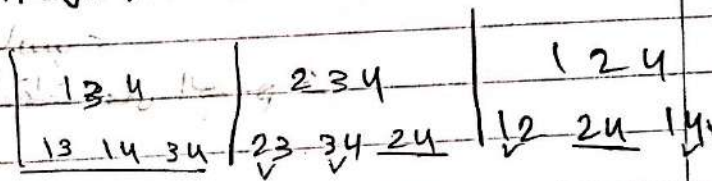 1 3 4 | 2 3 4 | 1 2 4
13 14 34 | 23 34 24 | 12 24 14